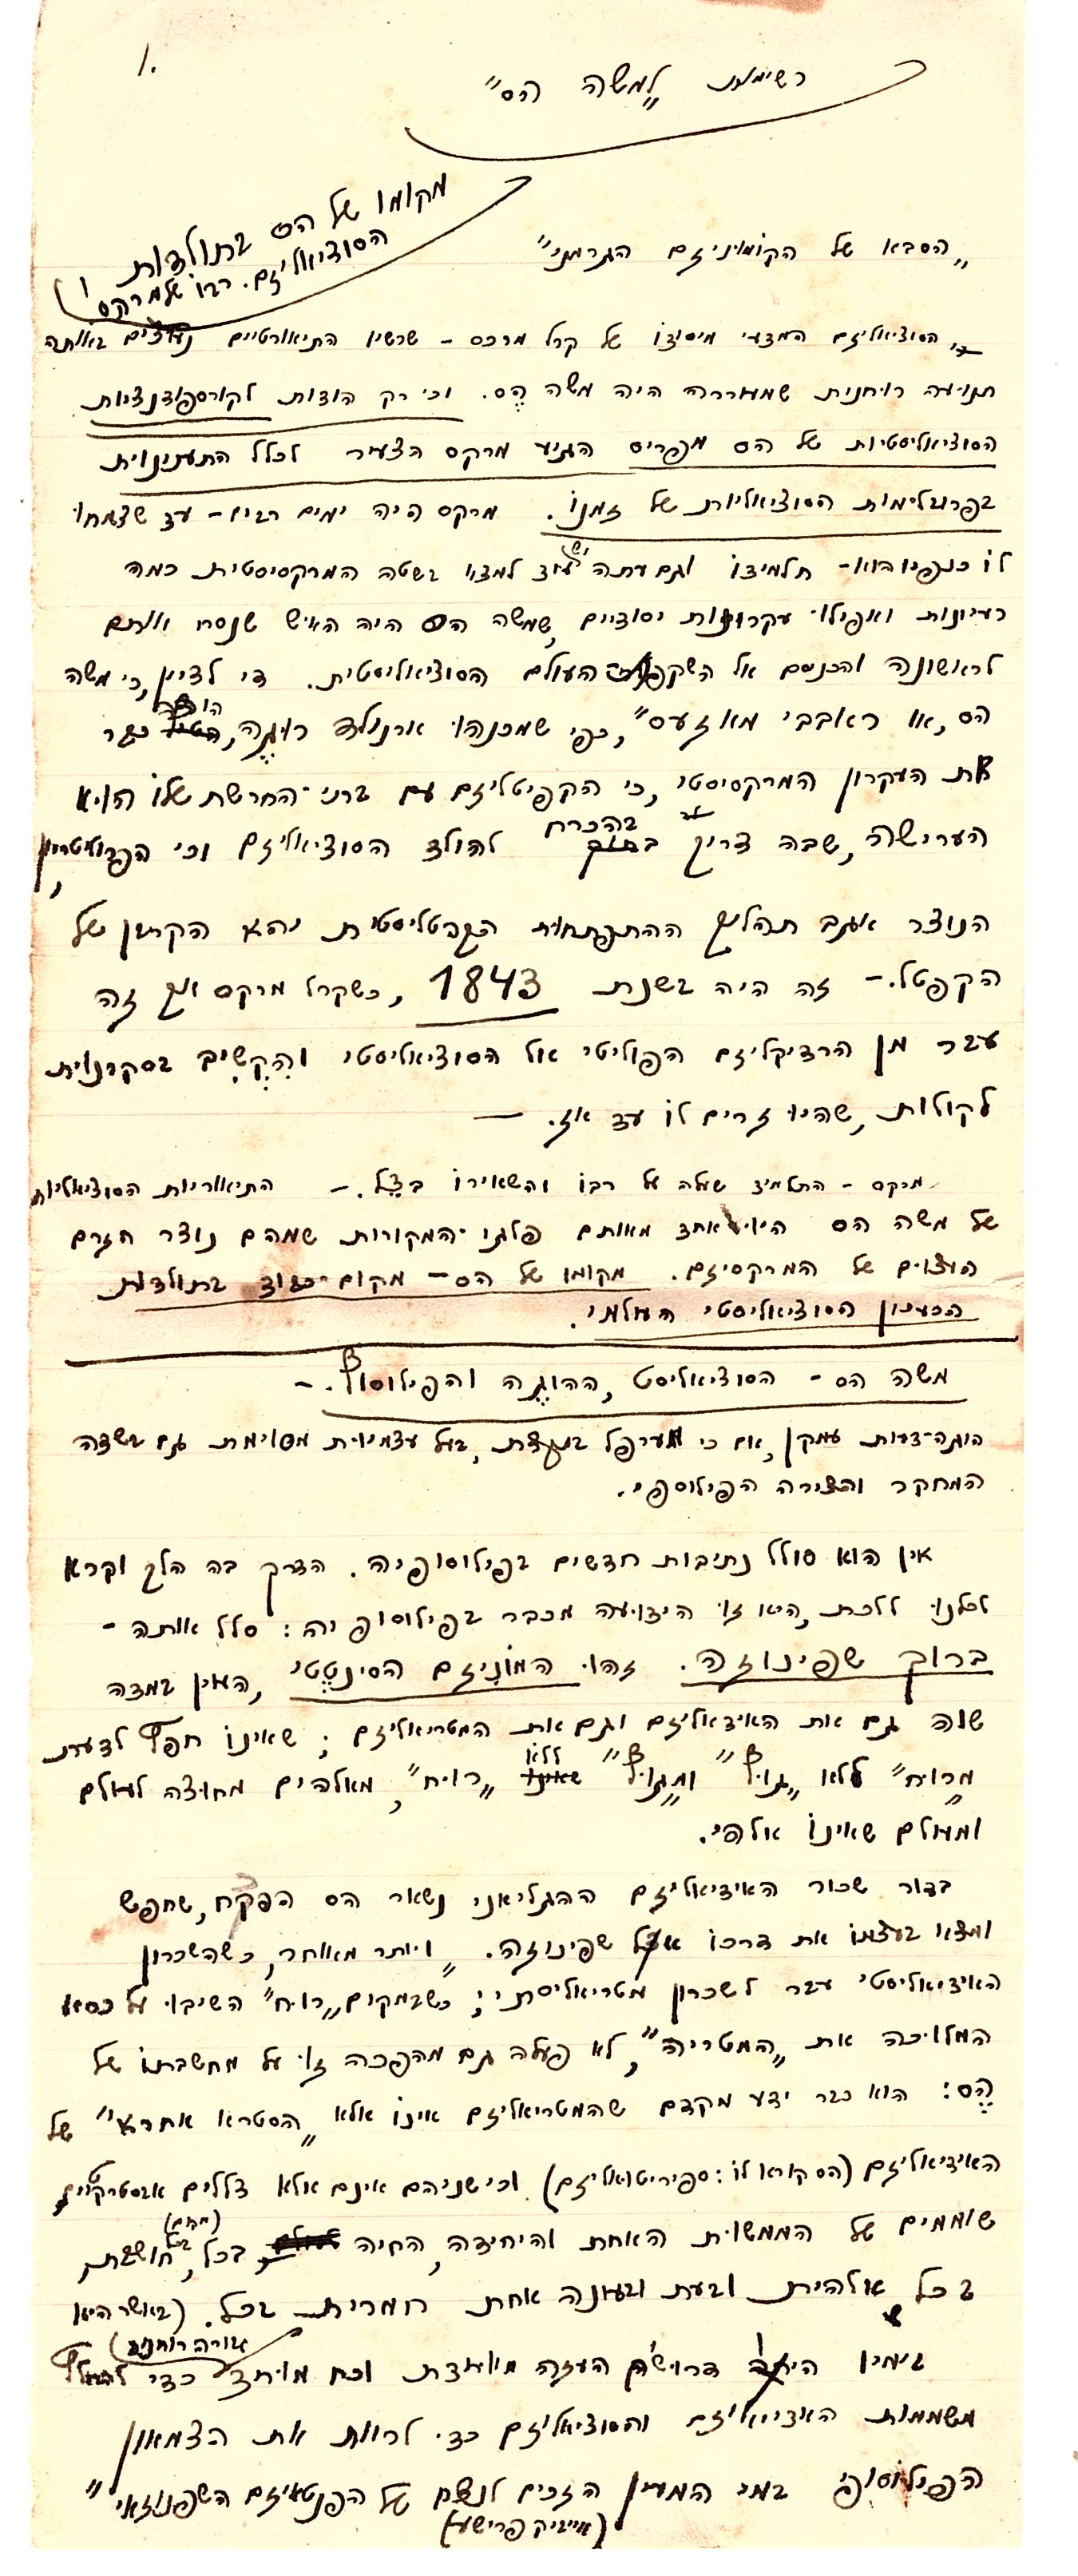 1.
רשימות „למשה הס"
מקומו של הס בתולדות
הסוציאליזם. רבו של מרקס
„הסבא של הקומוניזם הגרמני"
הסוציאליזם המדעי מיסודו של קרל מרכס - שרשיו התיאורטיים נעוצים באותה
תנועה רוחנית שמעוררה היה משה הֶס. וכי רק הודות לקורספודנציות
הסוציאליסטיות של הס מפריס הגיע מרקס הצעיר לכלל התענינוית
בפרובלימות הסוציאליות של זמנו. מרקס היה ימים רבים - עד שצמחו
לו כנפיו הוא - תלמידו וגם עתה יש עוד למצא בשטה המרקסיסטית כמה
רעיונות ואפילו עקרונות יסודיים, שמשה הס היה האיש שנסח אותם
לראשונה והכניסם אל השקפת העולם הסוציאליסטית. די לציין, כי משה
הס, או ראבבי מאזעס", כפי שמכנהו ארנולד רוגֶה, הורה כבר
את העקרון המרקסיסטי, כי הקפיטליזם עם ברני-החרשת שלו הויא
העריסה, שבה צריך בהכרח להולד הסוציאליזם וכי הפרוליטריון,
הנוצר אגב תהליך ההתפתחות הקפטליסטית יהא הקברן של
הקפטל. - זה היה בשנת 1843, כשקרל מרקס אך זה
עבר מן הרדיקליזם הפוליטי אל הסוציאליסטי והִקְשִיב בסקרנוית
לקולות, שהיו זרים לו עד אז. —
מרקס - התלמיד שעלה על רבו והשאירו בצֵל. - התיאוריות הסוציאליות
של משה הס היו אחד מאותם פלגי-המקורות שמהם נוצר הזרם
העצום של המרקסיזם. מקומו של הס - מקום-כבוד בתולדות
הרעיון הסוציאליסטי העולמי.
משה הס - הסוציאליסט, ההוגֶה והפילוסוף. -
הוגה-דעות עמקן, אם כי מעורפל במקצת, בעל עצמיוית מסוימת גם בשדה
המחקר והיצירה הפילוספי.
אין הוא סולל נתיבות חדשים בפילוסופיה. הדרך בה הלך וקרא
לכלנו ללכת, היא זו הידועה מכבר בפילוסופיה: סלל אותה -
ברוך שפינוזה. זהו המוניזם הסינטֶטי, העוין במדה
שוה גם את האידיאליזם וגם את המטריאליזם; שאינו חפץ לדעת
מ„רוח" ללא „גוף" ומ„גוף" ללא „רוח", מאלהים מחוצה לעולם
ומעולם שאינו אלהי.
בדור שכור האידיאליזם ההגליאני נשאר הס הפקח, שחפש
ומצא בעצמו את דרכו אצל שפינוזה. „ויותר מאוחר, כשהשכרון
האידיאליסטי עבר לשכרון מטריאליסתי; כשבמקום „רוח" השיבו על כסא
המלוכה את „המטריה", לא פעלה גם מהפכה זו על מחשבתו של
הֶס: הוא כבר ידע מקדם שהמטריאליזם אינו אלא „הסטרא אחרא" של
האידיאליזם (הס קורא לו: ספיריטואליזם) וכי שניהם אינם אלא צללים אבסטרקטיים,
שוממים של הממשות האחת והיחידה, החיה בכל, חושבת
בכל אלהית ובעת ובעונה אחת חמרית בכל. (באשר היא
גבורה רוחנית)
בימיו היתה דרושה העזה מיוחדת וכח מיוחד כדי להחלץ
משממות האידיאליזם והסוציאליזם כדי לרוות את הצמאון
הפילוסופי במי המעין הזכים לנצח של הפנטאיזם השפנוזאי"
(אייזיק פרישע)